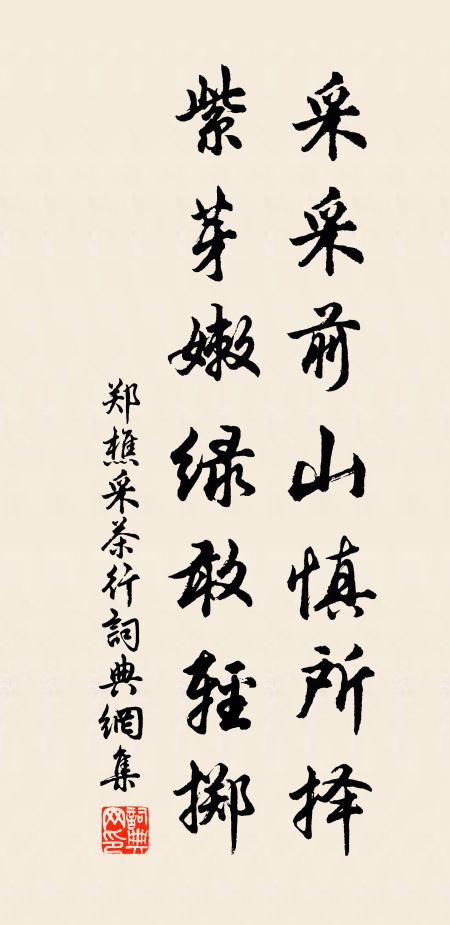 采采前山慎所择
紫芽嫩绿敢轻掷
郑樵采茶行詞典網集
詞典
网印